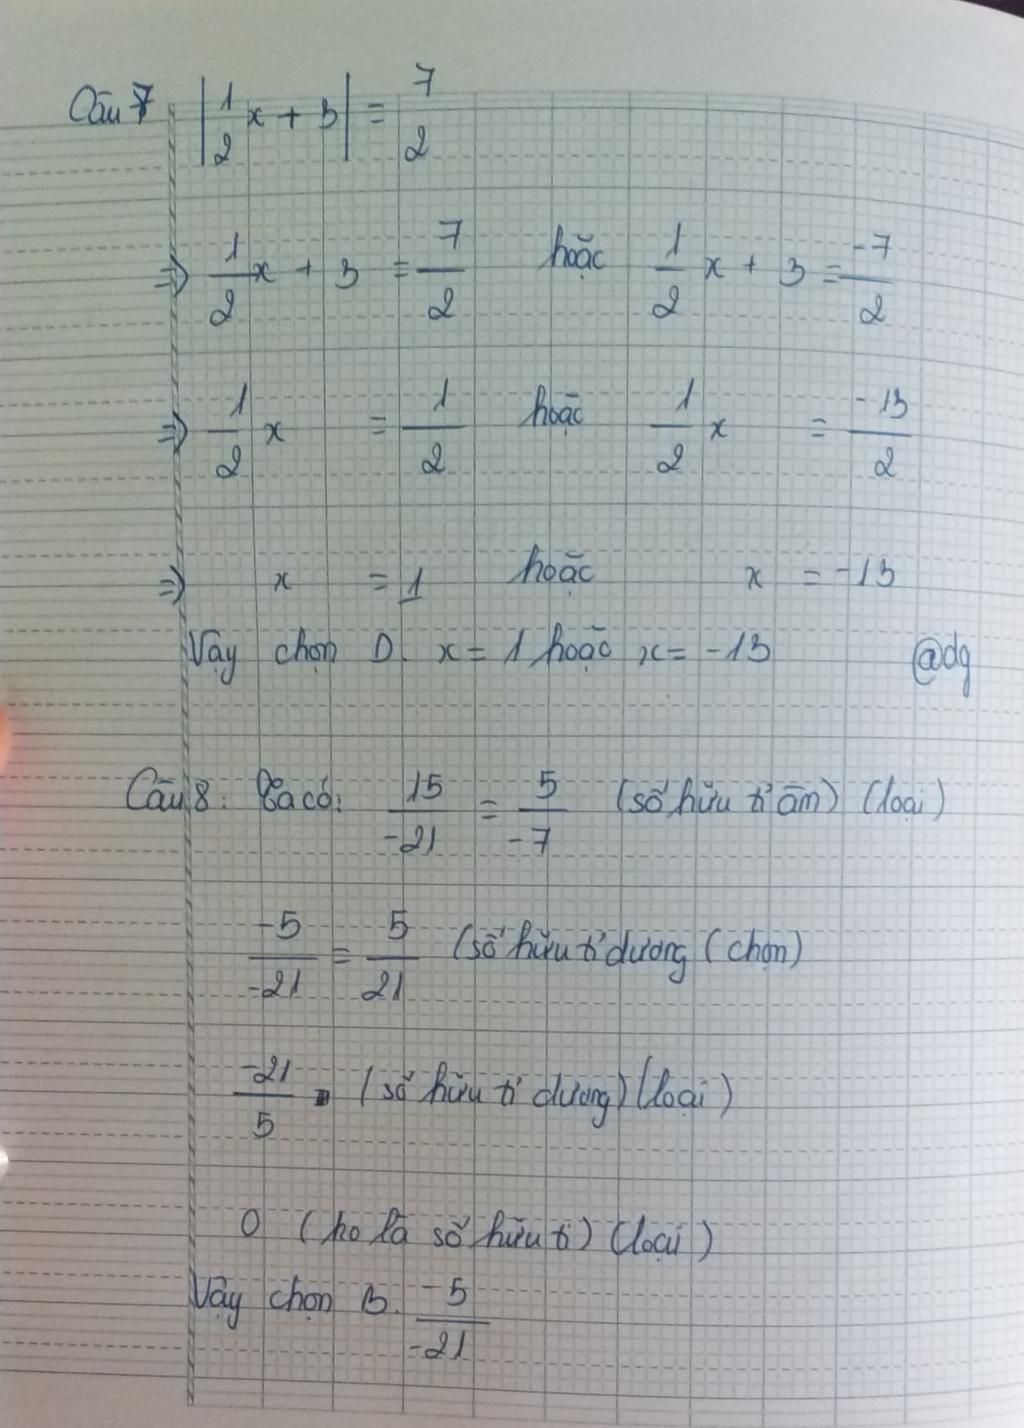 Câu 7 |1/2 x + 3| = 7/2
=> 1/2 x + 3 = 7/2 hoặc 1/2 x + 3 = -7/2
=> 1/2 x = 1/2 hoặc 1/2 x = -13/2
=> x = 1 hoặc x = -13
Vậy chọn D. x = 1 hoặc x = -13 @dg
Câu 8: Ta có: 15/-21 = 5/-7 (số hữu tỉ âm) (loại)
-5/-21 = 5/21 (số hữu tỉ dương (chọn)
-21/5 (số hữu tỉ dương) (loại)
0 (ho là số hữu tỉ) (loại)
Vậy chọn B. -5/-21